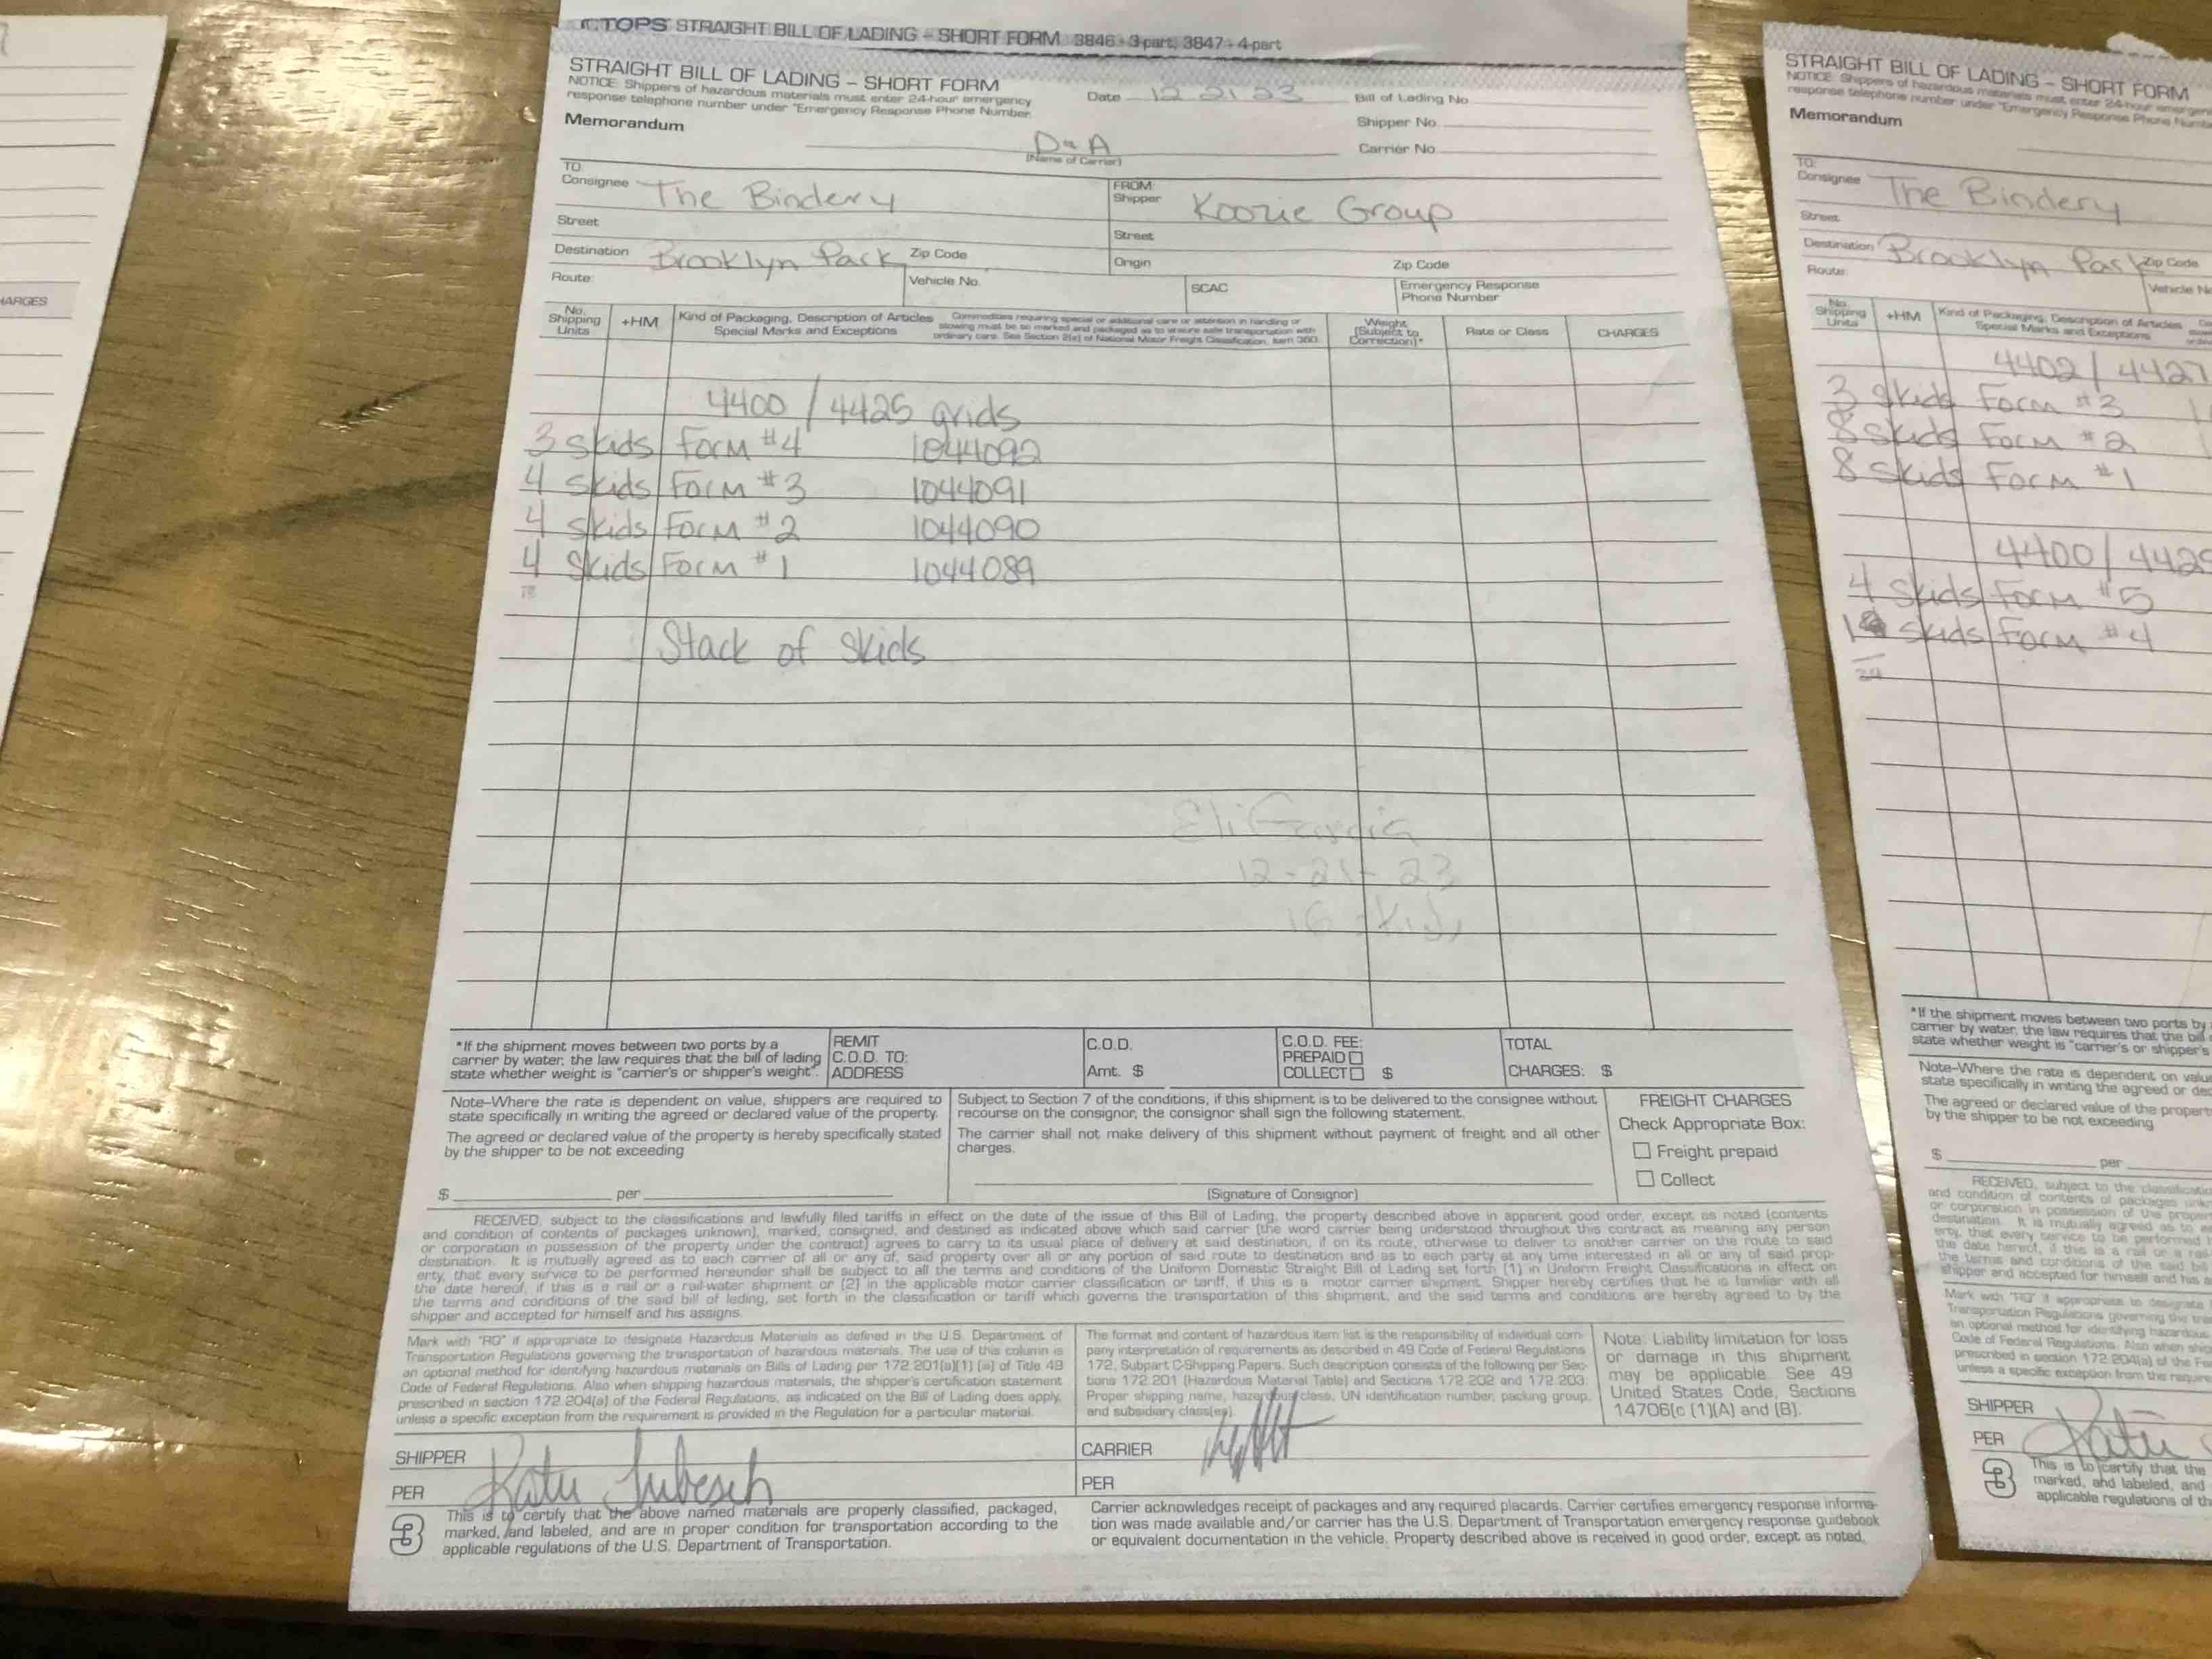 TOPS STRAIGHT BILL OF LADING - SHORT FORM 3846 - 3-part, 3847 - 4-part
STRAIGHT BILL OF LADING – SHORT FORM
NOTICE: Shippers of hazardous materials must enter 24-hour emergency
response telephone number under "Emergency Response Phone Number.
Memorandum
Date 12 21 23
Bill of Lading No.
Shipper No.
Carrier No.
(Name of Carrier)
TO:
Consignee The Bindery
Street
Destination Brooklyn Park Zip Code
Route: Vehicle No.
FROM:
Shipper Koozie Group
Street
Origin Zip Code
SCAC
Emergency Response
Phone Number
No.
Shipping
Units
+HM
Kind of Packaging, Description of Articles
Special Marks and Exceptions
Commodities requiring special or additional care or attention in handling or
stowing must be so marked and packaged as to ensure safe transportation with
ordinary care. See Section 2(e) of National Motor Freight Classification, Item 360.
Weight
(Subject to
Correction)*
Rate or Class
CHARGES
4400 / 4425 grids
3 skids Form #4 1044092
4 skids Form #3 1044091
4 skids Form #2 1044090
4 skids Form #1 1044089
Stack of Skids
Eli Garcia
12-21-23
16 skids
*If the shipment moves between two ports by a
carrier by water, the law requires that the bill of lading
state whether weight is "carrier's or shipper's weight".
REMIT
C.O.D. TO:
ADDRESS
C.O.D.
Amt. $
C.O.D. FEE:
PREPAID
COLLECT $
TOTAL
CHARGES: $
Note–Where the rate is dependent on value, shippers are required to
state specifically in writing the agreed or declared value of the property.
The agreed or declared value of the property is hereby specifically stated
by the shipper to be not exceeding
$ per
Subject to Section 7 of the conditions, if this shipment is to be delivered to the consignee without
recourse on the consignor, the consignor shall sign the following statement.
The carrier shall not make delivery of this shipment without payment of freight and all other
charges.
(Signature of Consignor)
FREIGHT CHARGES
Check Appropriate Box:
Freight prepaid
Collect
RECEIVED, subject to the classifications and lawfully filed tariffs in effect on the date of the issue of this Bill of Lading, the property described above in apparent good order, except as noted (contents
and condition of contents of packages unknown), marked, consigned, and destined as indicated above which said carrier (the word carrier being understood throughout this contract as meaning any person
or corporation in possession of the property under the contract) agrees to carry to its usual place of delivery at said destination, if on its route, otherwise to deliver to another carrier on the route to said
destination. It is mutually agreed as to each carrier of all or any of, said property over all or any portion of said route to destination and as to each party at any time interested in all or any of said prop-
erty, that every service to be performed hereunder shall be subject to all the terms and conditions of the Uniform Domestic Straight Bill of Lading set forth (1) in Uniform Freight Classifications in effect on
the date hereof, if this is a rail or a rail-water shipment or (2) in the applicable motor carrier classification or tariff, if this is a motor carrier shipment. Shipper hereby certifies that he is familiar with all
the terms and conditions of the said bill of lading, set forth in the classification or tariff which governs the transportation of this shipment, and the said terms and conditions are hereby agreed to by the
shipper and accepted for himself and his assigns.
Mark with "RQ" if appropriate to designate Hazardous Materials as defined in the U.S. Department of
Transportation Regulations governing the transportation of hazardous materials. The use of this column is
an optional method for identifying hazardous materials on Bills of Lading per 172.201(a)(1) (iii) of Title 49
Code of Federal Regulations. Also when shipping hazardous materials, the shipper's certification statement
prescribed in section 172.204(a) of the Federal Regulations, as indicated on the Bill of Lading does apply,
unless a specific exception from the requirement is provided in the Regulation for a particular material.
The format and content of hazardous item list is the responsibility of individual com-
pany interpretation of requirements as described in 49 Code of Federal Regulations
172, Subpart C-Shipping Papers. Such description consists of the following per Sec-
tions 172.201 (Hazardous Material Table) and Sections 172.202 and 172.203:
Proper shipping name, hazardous class, UN identification number, packing group,
and subsidiary class(es).
Note: Liability limitation for loss
or damage in this shipment
may be applicable. See 49
United States Code, Sections
14706(c (1)(A) and (B).
SHIPPER
PER Katu
CARRIER
PER
3
This is to certify that the above named materials are properly classified, packaged,
marked, and labeled, and are in proper condition for transportation according to the
applicable regulations of the U.S. Department of Transportation.
Carrier acknowledges receipt of packages and any required placards. Carrier certifies emergency response informa-
tion was made available and/or carrier has the U.S. Department of Transportation emergency response guidebook
or equivalent documentation in the vehicle. Property described above is received in good order, except as noted.
HARGES
STRAIGHT BILL OF LADING – SHORT FORM
NOTICE: Shippers of hazardous materials must enter 24-hour
response telephone number under "Emergency Response Phone
Memorandum
TO:
Consignee The Bindery
Street
Destination Brooklyn Park Zip Code
Route: Vehicle
No.
Shipping
Units
+HM
Kind of Packaging, Description of Articles
Special Marks and Exceptions
4402 / 4427
3 skids Form #3
8 skids Form #2
8 skids Form #1
4400 / 4425
4 skids Form #5
skids Form #4
*If the shipment moves between two ports by
carrier by water, the law requires that the bill
state whether weight is "carrier's or shipper's
Note–Where the rate is dependent on
state specifically in writing the agreed or
The agreed or declared value of the
by the shipper to be not exceeding
$ per
SHIPPER
PER Katu
3
This is to certify that the
marked, and labeled, and
applicable regulations of